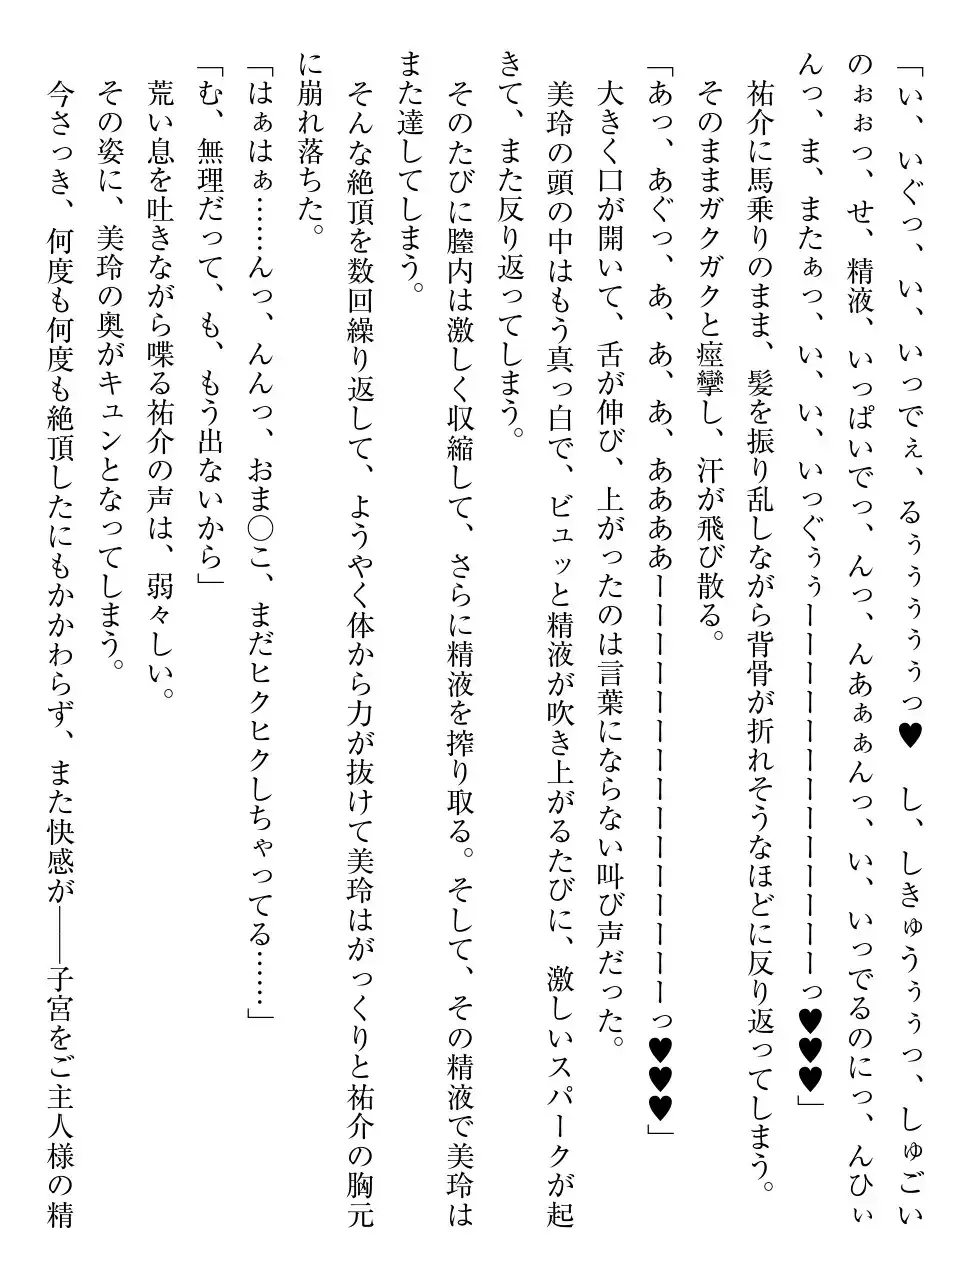 「い、いぐっ、い、いっでぇ、るぅぅぅぅぅっ♥　し、しきゅうぅぅっ、しゅごい
のぉぉっ、せ、精液、いっぱいでっ、んっ、んあぁぁんっ、い、いっでるのにっ、んひぃ
んっ、ま、またぁっ、い、い、いっぐぅぅーーーーーーーーーーーーーっ♥♥♥」
　祐介に馬乗りのまま、髪を振り乱しながら背骨が折れそうなほどに反り返ってしまう。
　そのままガクガクと痙攣し、汗が飛び散る。
「あっ、あぐっ、あ、あ、あ、ああああーーーーーーーーーーーーーーーっ♥♥♥」
　大きく口が開いて、舌が伸び、上がったのは言葉にならない叫び声だった。
　美玲の頭の中はもう真っ白で、ビュッと精液が吹き上がるたびに、激しいスパークが起
きて、また反り返ってしまう。
　そのたびに膣内は激しく収縮して、さらに精液を搾り取る。そして、その精液で美玲は
また達してしまう。
　そんな絶頂を数回繰り返して、ようやく体から力が抜けて美玲はがっくりと祐介の胸元
に崩れ落ちた。
「はぁはぁ……んっ、んんっ、おま〇こ、まだヒクヒクしちゃってる……」
「む、無理だって、も、もう出ないから」
　荒い息を吐きながら喋る祐介の声は、弱々しい。
　その姿に、美玲の奥がキュンとなってしまう。
　今さっき、何度も何度も絶頂したにもかかわらず、また快感が――子宮をご主人様の精